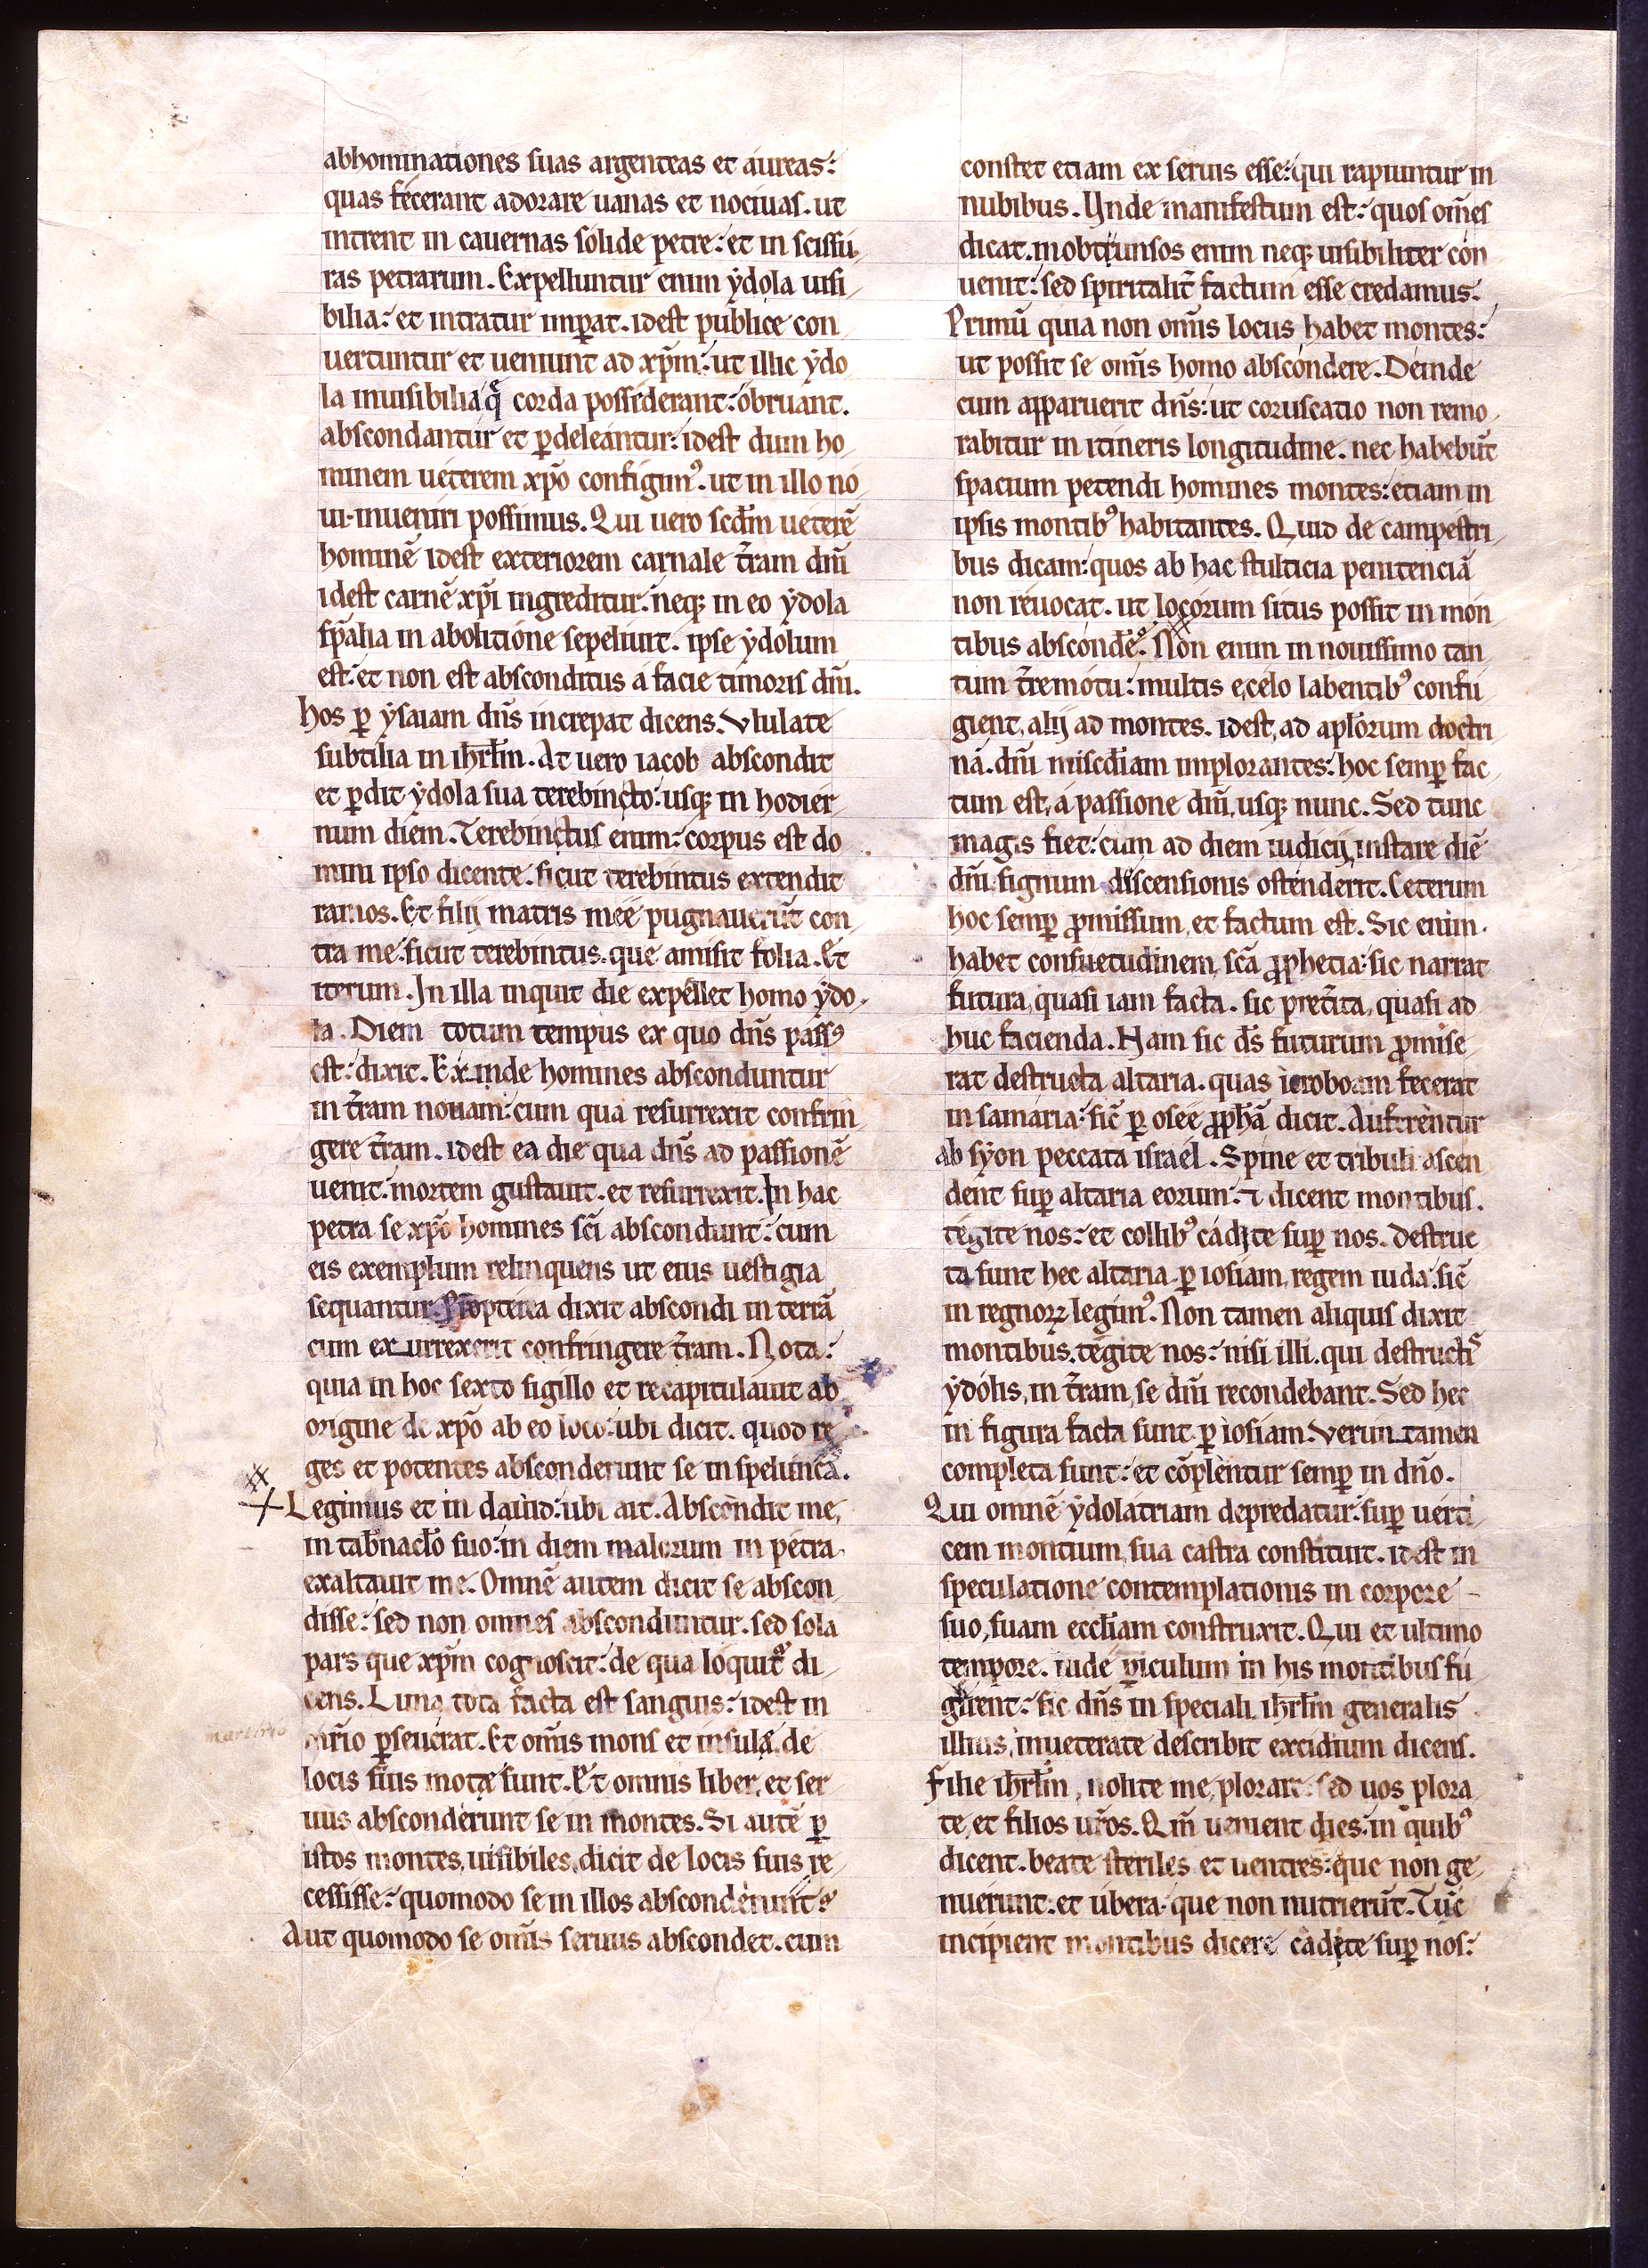 abhominationes suas argenteas et aureas:
quas fecerant adorare uanas et nociuas. ut
intrent in cauernas solide petre: et in scissu
ras petrarum. Expelluntur enim ydola uisi
bilia: et intratur inꝑat. idest publice con
uertuntur et ueniunt ad xp̄m: ut illic ydo
la inuisibilia q̄ corda possiderant: obruant.
abscondantur et ꝑdeleantur: idest dum ho
minem ueterem xp̄o configimꝰ. ut in illo no
ui inueniri possimus. Qui uero scd̄m ueterē
hominē idest exteriorem carnale t̄ram dn̄i
idest carnē xp̄i ingreditur. neqꝫ in eo ydola
sp̄alia in abolitione sepeliuit. ipse ydolum
est: et non est absconditus a facie timoris dn̄i.
hos ꝑ ysaiam dn̄s increpat dicens. Vlulate
subtilia in ihrl̄m. At uero iacob abscondit
et ꝑdit ydola sua terebincto: usqꝫ in hodier
num diem. Terebinctus enim: corpus est do
mini ipso dicente. sicut terebintus extendit
ramos. Et filij matris mee pugnauerūt con
tra me sicut terebintus. que amisit folia. Et
iterum. In illa inquit die expellet homo ydo
la. Diem totum tempus ex quo dn̄s passꝰ
est: dixit. Ex inde homines absconduntur
in t̄ram nouam: cum qua resurrexit confrin
gere t̄ram. idest ea die qua dn̄s ad passionē
uenit. mortem gustauit. et resurrexit. In hac
petra se xp̄o homines sc̄i abscondunt: cum
eis exemplum relinquens ut eius uestigia
sequantur. Propterea dixit abscondi in terrā
cum exurrexerit confringere t̄ram. Nota:
quia in hoc sexto sigillo et recapitulauit ab
origine de xp̄o ab eo loco: ubi dicit. quod re
ges et potentes absconderunt se in speluncā.
Legimus et in dauid: ubi ait. Abscondit me,
in tab̄nacl̄o suo: in diem malorum in petra
exaltauit me. Omnē autem dicit se abscon
disse: sed non omnes absconduntur. sed sola
pars que xp̄m cognoscit: de qua loquit᷑ di
cens. Luna tota facta est sanguis: idest in
martirio
mr̄io ꝑseuerat. Et om̄is mons et insula de
locis suis mota sunt. Et omnis liber, et ser
uus absconderunt se in montes. Si autē ꝑ
istos montes, uisibiles, dicit de locis suis re
cessisse: quomodo se in illos absconderunt?
Aut quomodo se om̄is seruus abscondet. cum
constet etiam ex seruis esse: qui rapiuntur in
nubibus. Unde manifestum est: quos om̄es
dicat. in obtrunsos enim neqꝫ uisibiliter con
uenit: sed spiritalit̄ factum esse credamus.
Primū quia non om̄is locus habet montes:
ut possit se om̄is homo abscondere. Deinde
cum apparuerit dn̄s: ut coruscatio non remo
rabitur in itineris longitudine. nec habebūt
spacium petendi homines montes: etiam in
ipsis montibꝰ habitantes. Quid de campestri
bus dicam: quos ab hac stulticia penitenciā
non reuocat. ut locorum situs possit in mon
tibus abscondē. Non enim in nouissimo tan
tum t̄remotu: multis e, celo labentibꝰ confu
gient, alij ad montes. idest, ad apl̄orum doctri
nā. dn̄i misc̄diam implorantes: hoc semꝑ fac
tum est, a passione dn̄i, usqꝫ nunc. Sed tunc
magis fiet: cum ad diem iudicij, instare diē
dn̄i signum discensionis ostenderit. Ceterum
hoc semꝑ ꝓmissum, et factum est. Sic enim
habet consuetudinem, sc̄a ꝓphetia: sic narrat
futura, quasi iam facta. sic pret̄ita, quasi ad
huc facienda. Nam sic ds̄ futurum ꝓmise
rat destructa altaria. quas ieroboam fecerat
in samaria: sic̄ ꝑ osee ꝓph̄ā dicit. Auferentur
ab syon peccata israel. Spine et tribuli ascen
dent suꝑ altaria eorum: ⁊ dicent montibus.
tegite nos: et collibꝰ cadite suꝑ nos. Destruc
ta sunt hec altaria ꝑ iosiam, regem iuda: sic̄
in regnoꝝ legimꝰ. Non tamen aliquis dixit
montibus. tegite nos: nisi illi. qui destructis
ydolis, in t̄ram, se dn̄i recondebant. Sed hec
in figura facta sunt ꝑ iosiam. Verun tamen
completa sunt: et cōplentur semꝑ in dn̄o.
Qui omnē ydolatriam depredatur: suꝑ uerti
cem montium, sua castra constituit. idest in
speculatione contemplationis in corpore
suo, suam eccl̄iam construxit. Qui et ultimo
tempore. iude ꝑiculum in his montibus fu
girent: sic dn̄s in speciali ihrl̄m generalis
illius, inueterate describit excidium dicens.
Filie ihrl̄m, nolite me, plorare. sed uos plora
te, et filios ur̄os. Qm̄ uenient dies: in quibꝰ
dicent. beate steriles et uentres: que non ge
nuerunt: et ubera que non nutrierūt. Tūc
incipient montibus dicere cadite suꝑ nos: